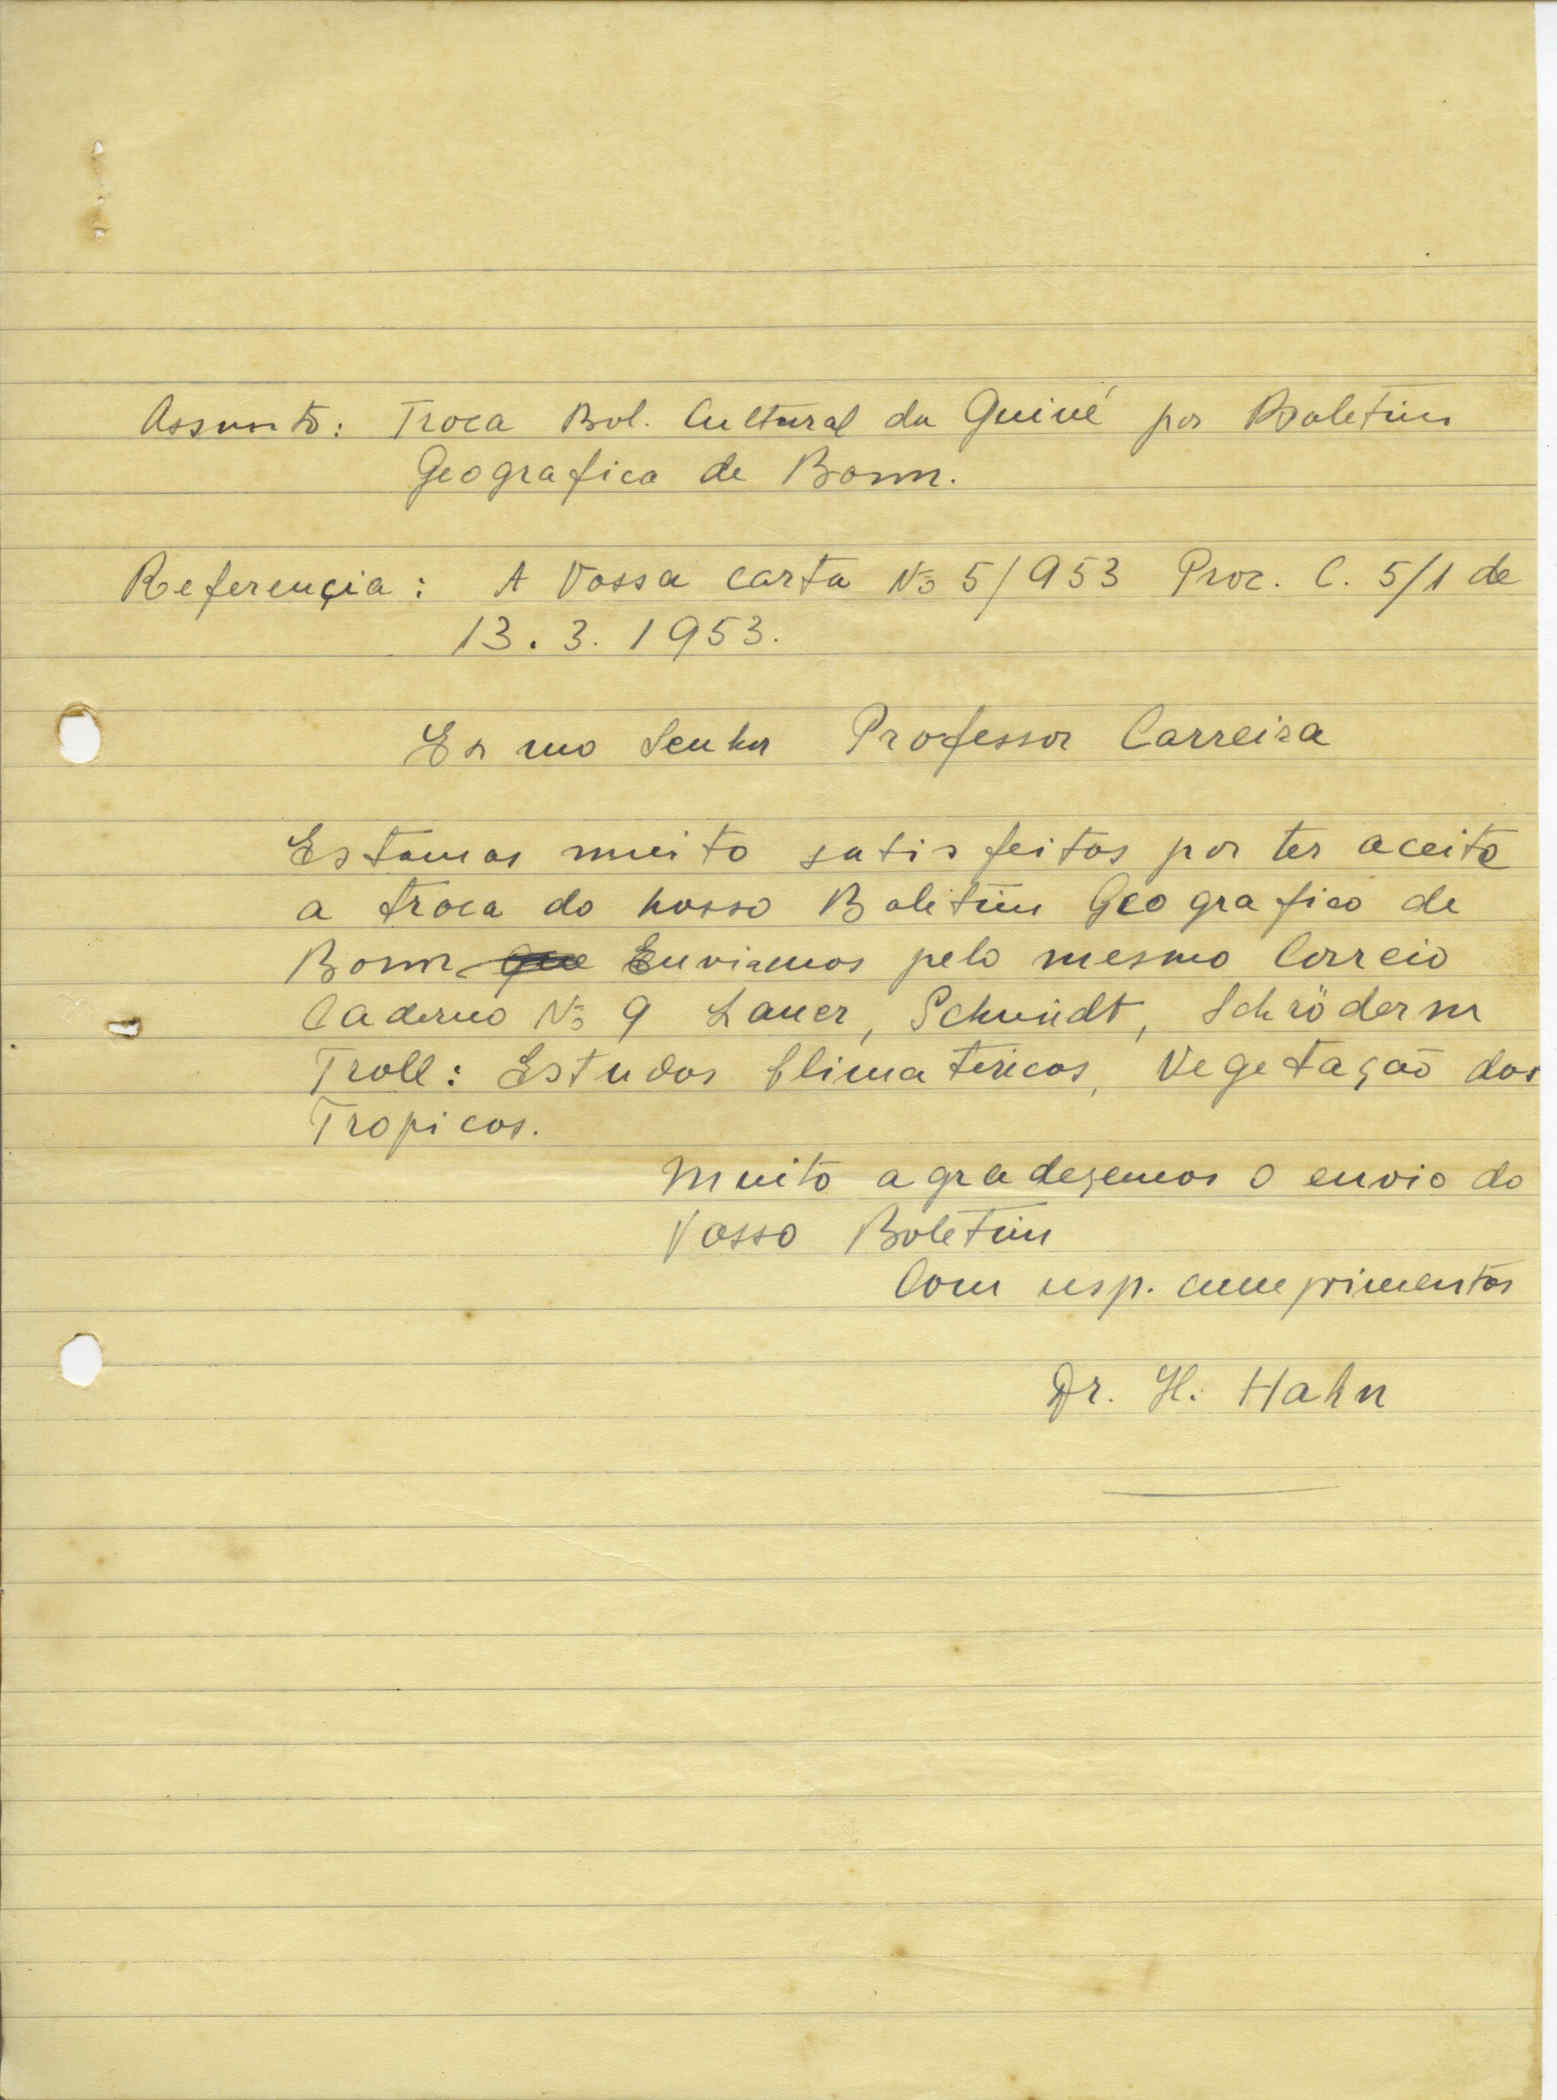 Assunto: Troca Bol. Cultural da Guiné por Boletim
Geografica de Bonn.
Referençia: A Vossa carta No 5/953 Proc. C. 5/1 de
13.3.1953.
Exmo Senhor Professor Carreira
Estamos muito satisfeitos por ter aceite
a troca do nosso Boletim Geografico de
Bonn que Enviamos pelo mesmo Correio
Caderno No 9 Lauer, Schmidt, Schröder
Troll: Estudos Climatericos, Vegetação dos
Tropicos.
Muito agradeçemos o envio do
Vosso Boletim
Com resp. cumprimentos
Dr. H. Hahn